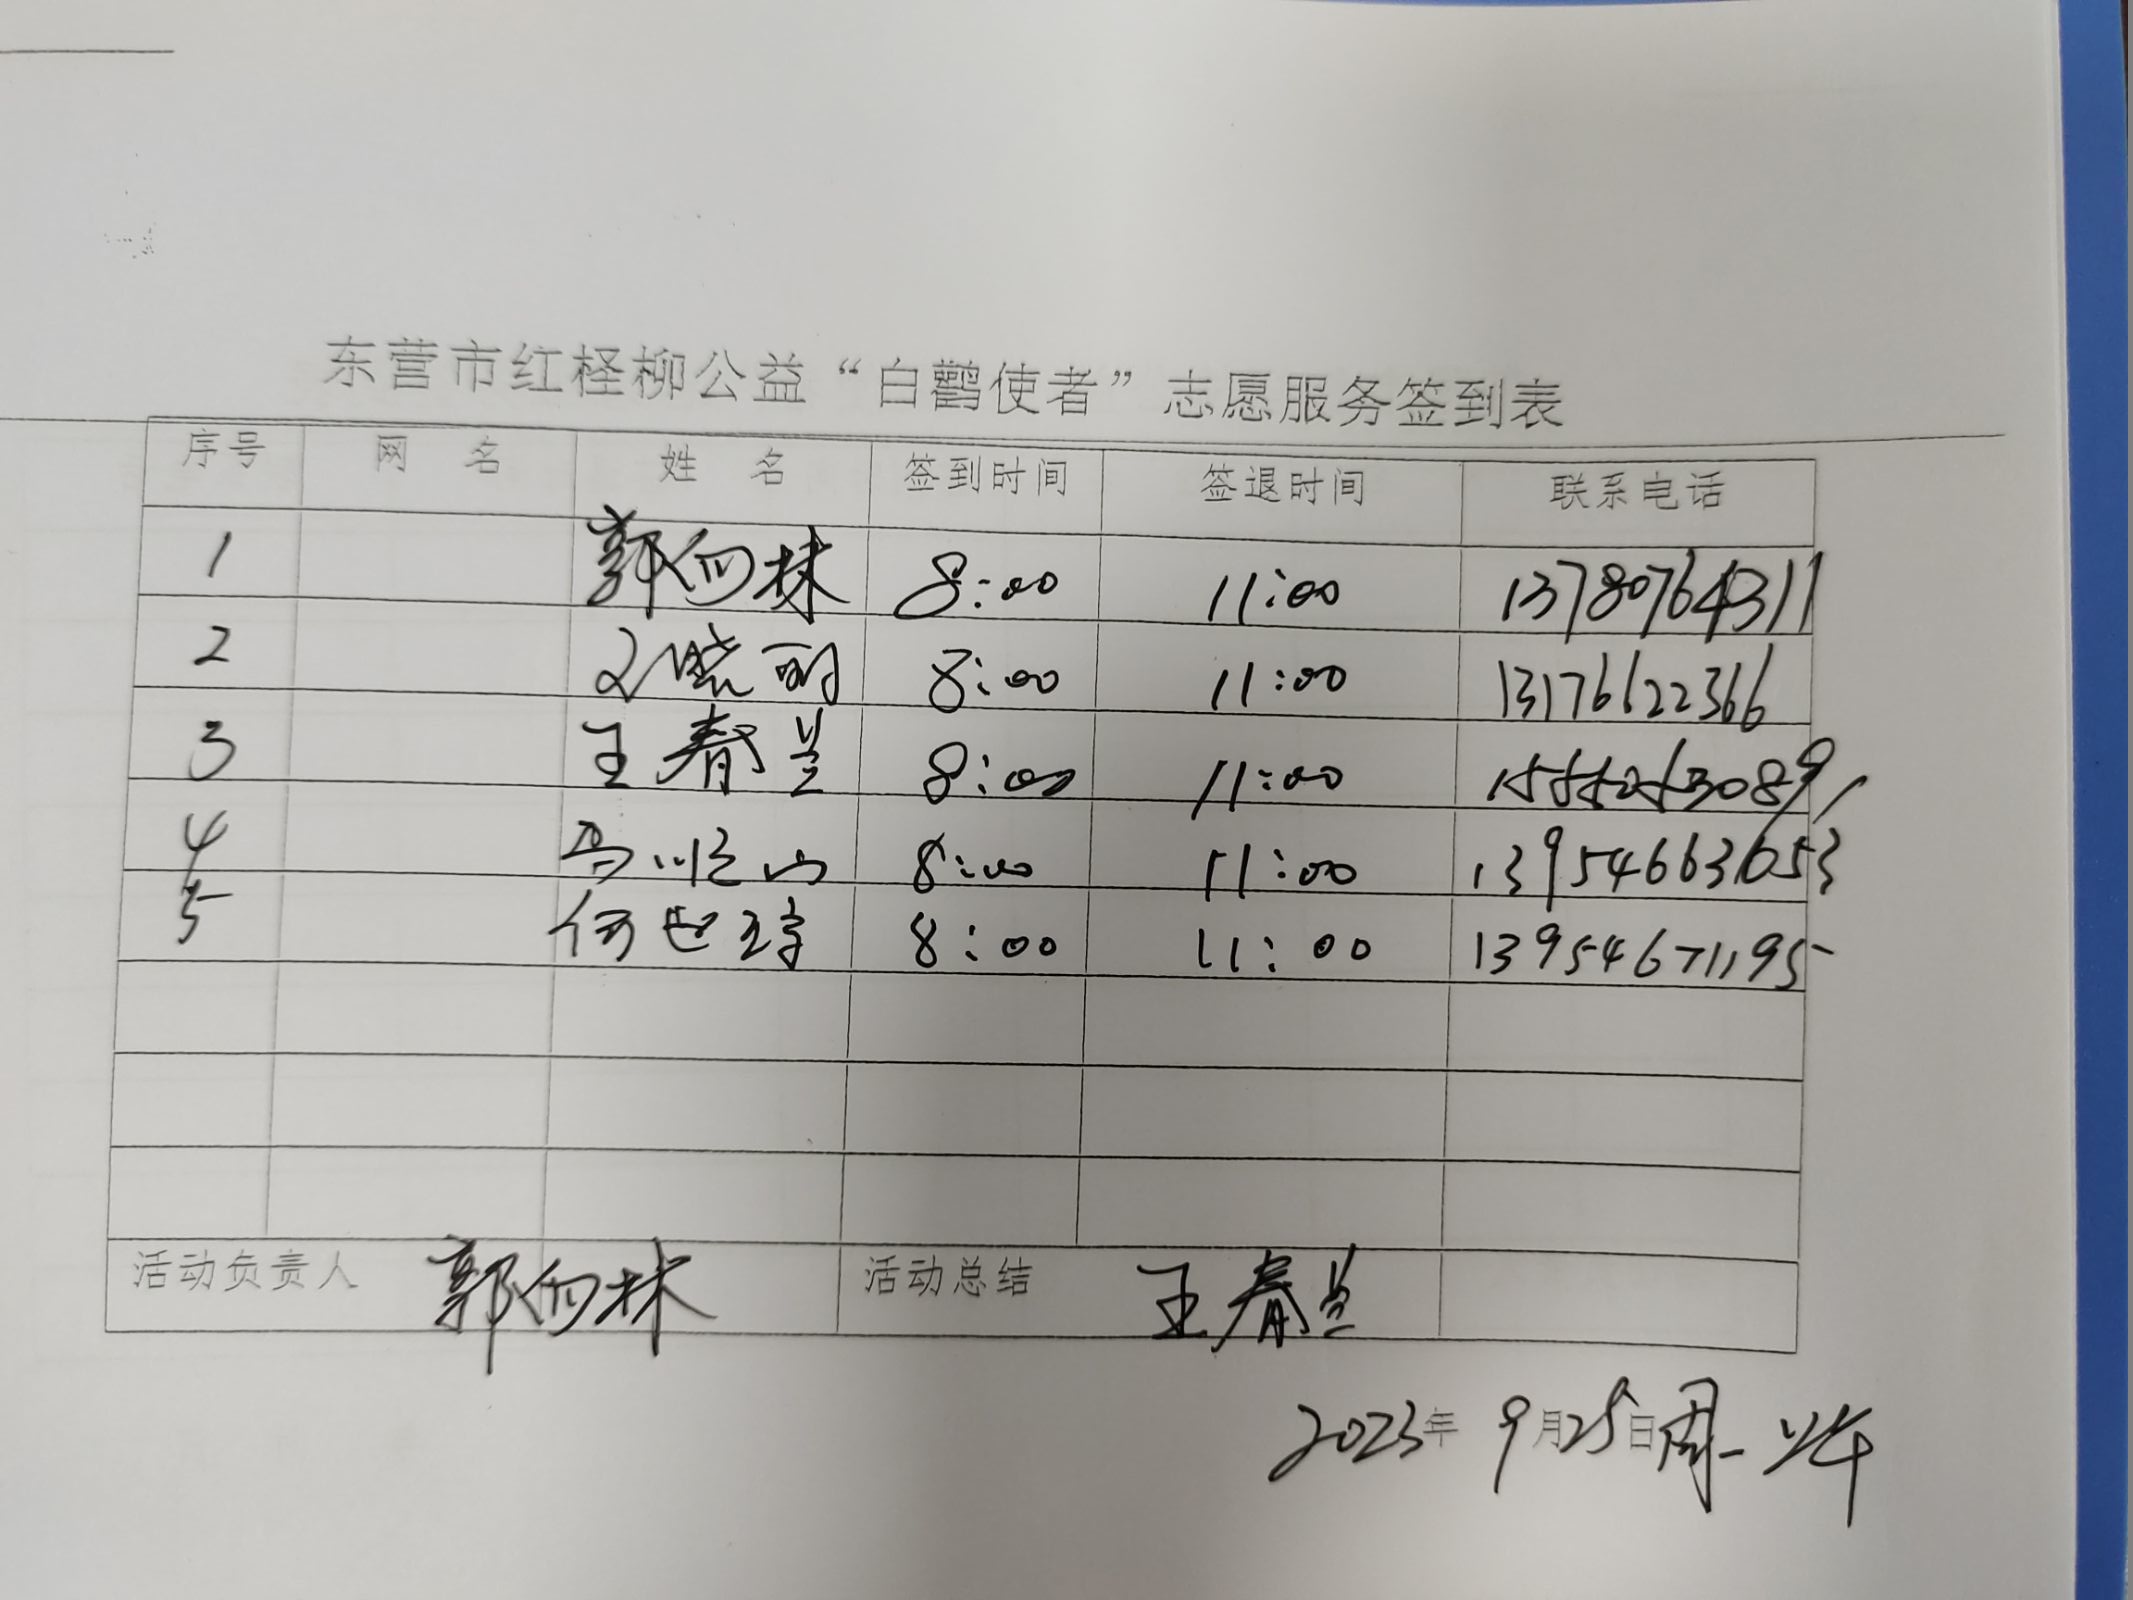 东营市红柽柳公益“白鹳使者”志愿服务签到表
序号 网 名 姓 名 签到时间 签退时间 联系电话
1 郭向林 8:00 11:00 13780764311
2 晓丽 8:00 11:00 13176622366
3 王春兰 8:00 11:00 15552653089
4 马顺山 8:00 11:00 13954663653
5 何世 8:00 11:00 13954671195
活动负责人 郭向林 活动总结 王春兰
2023年 9月25日周一上午